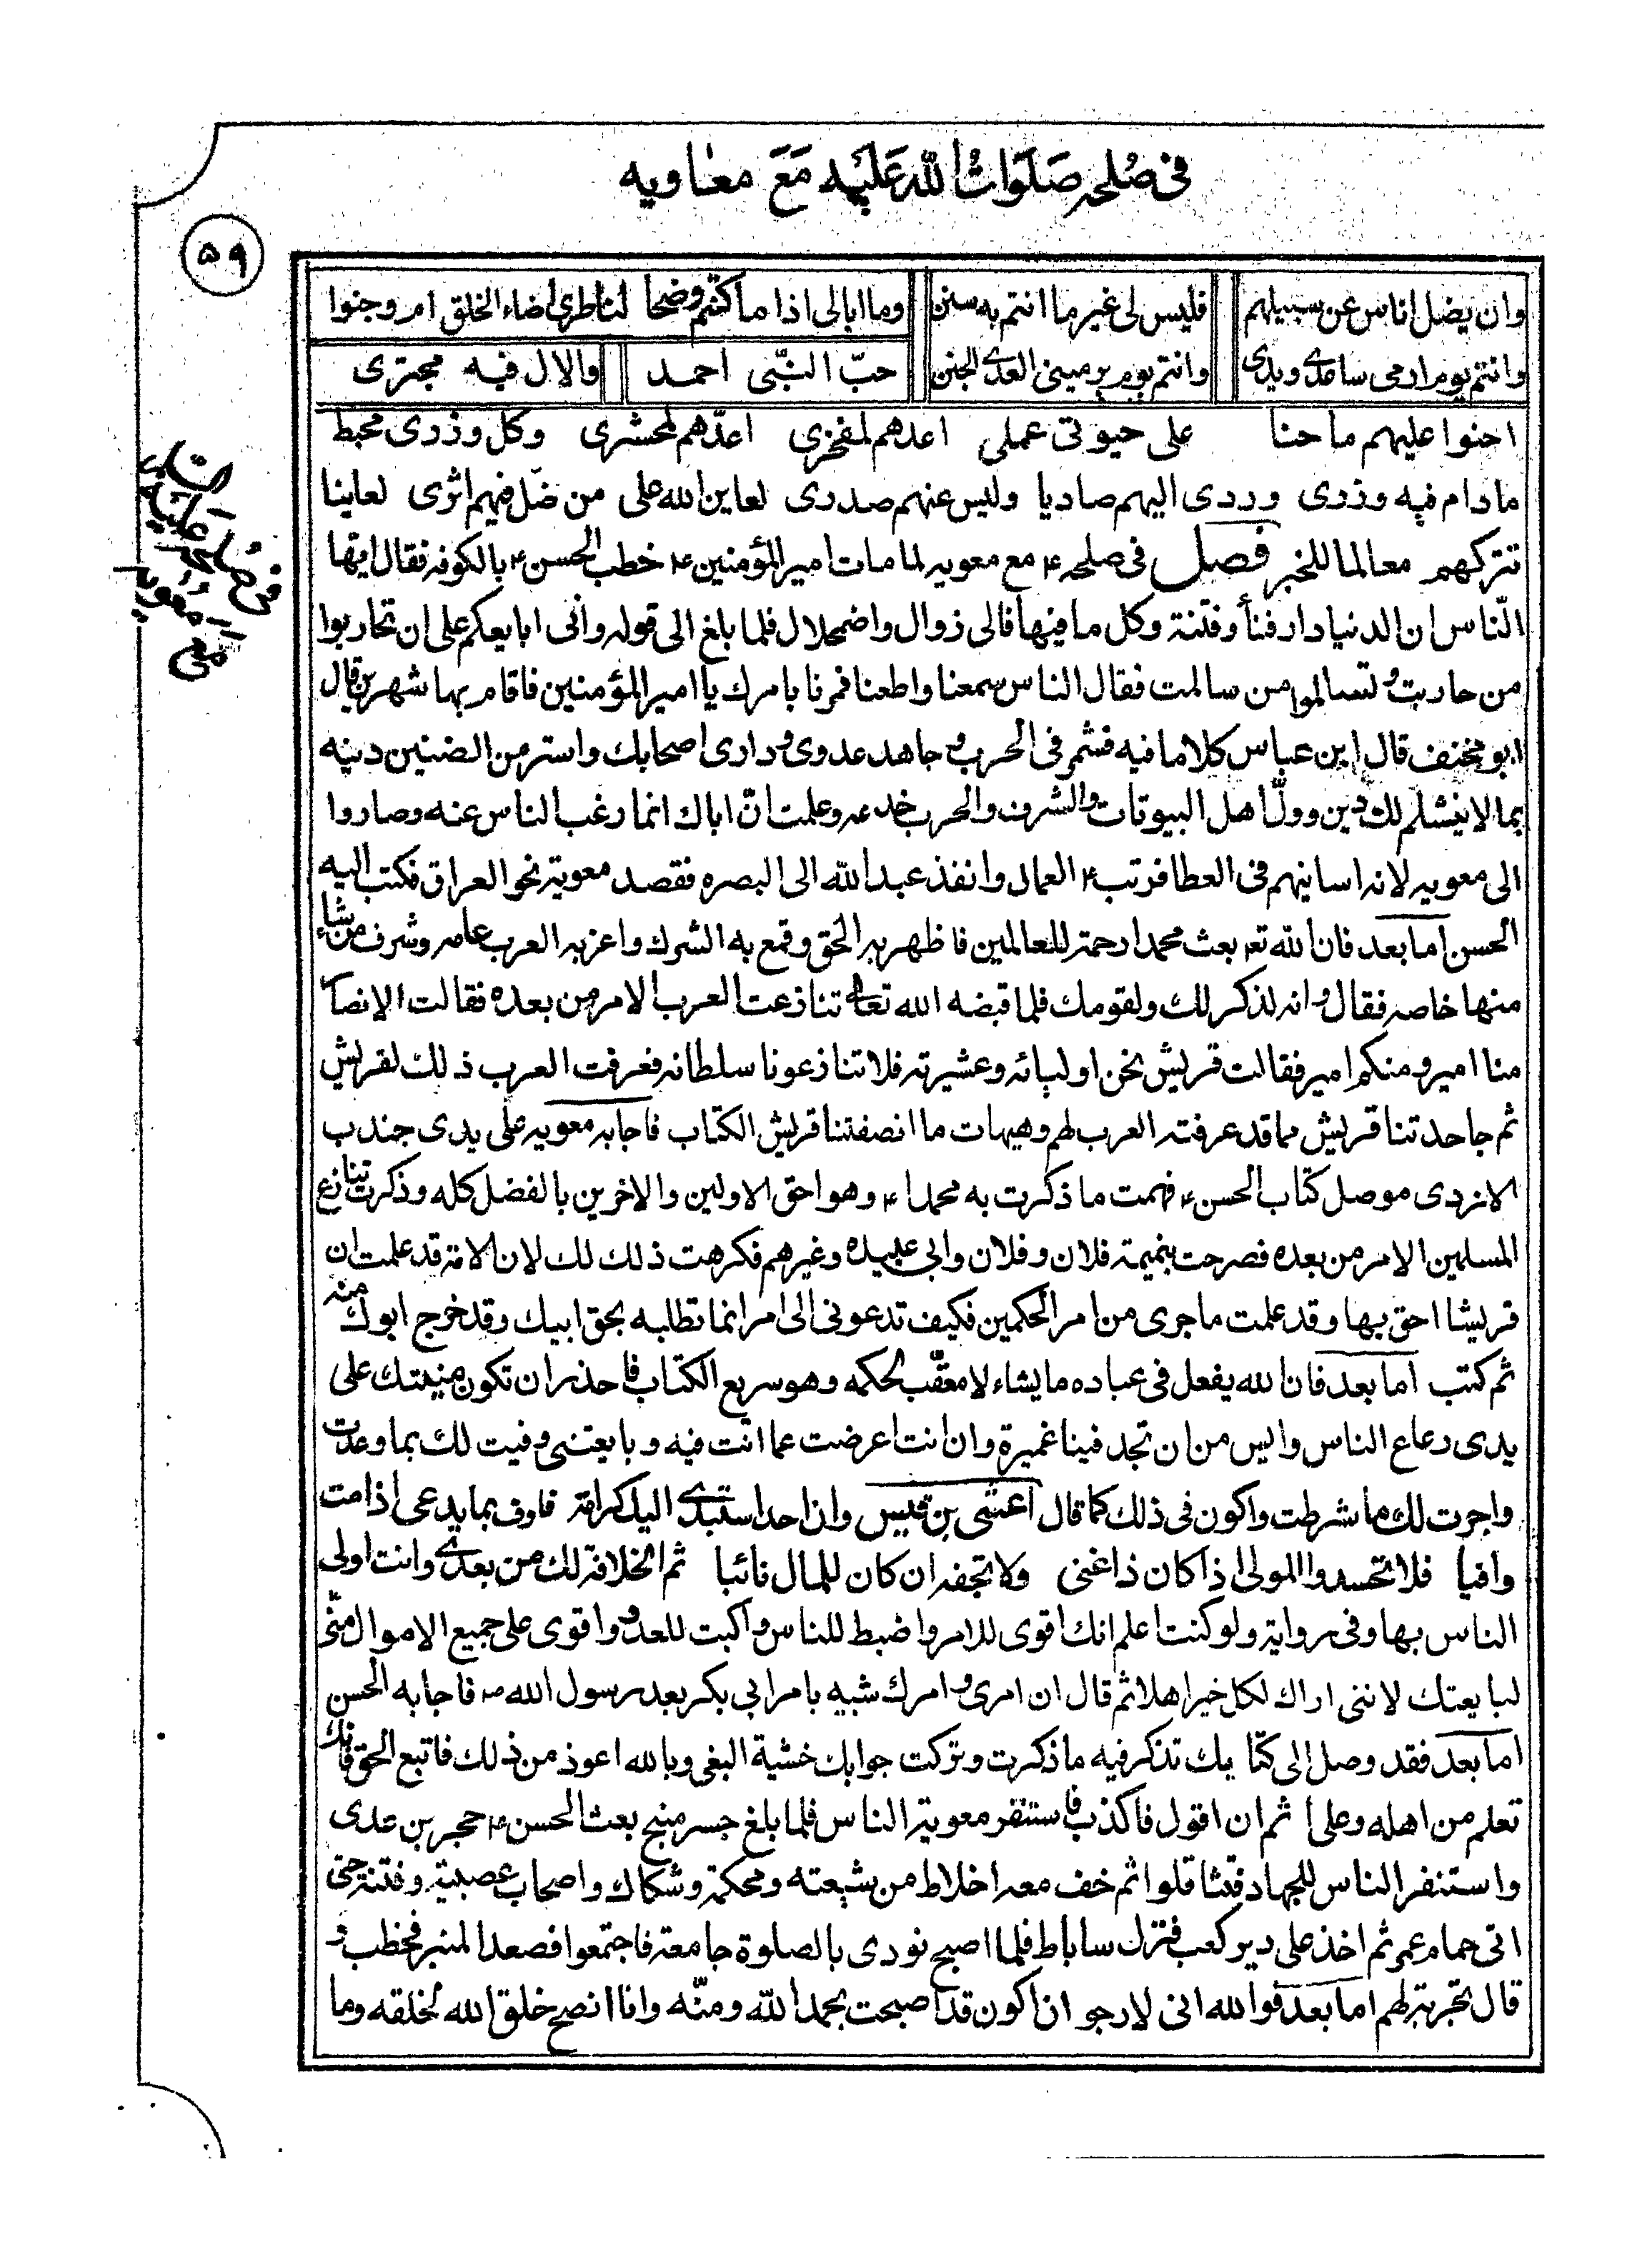 في صلحه صلوات الله عليه مع معاويه
٥٩
وان يضل اناس عن سبيلهم فليس لى غير ما انتم به سنن وما ابالى اذا ما كنتم وضحا لناظرى اضاء الخلق ام وجنوا
وانتم يوم ارمى ساعدى ويدى وانتم يوم يرمينى العدى الجنن حبّ النبّى احمد والال فيه مجترى
احنوا عليهم ما حنا على حيوتى عملى اعدهم لمفخرى اعدّهم لمحشرى وكل وزرى محبط
مادام فيه وزرى وردى اليهم صاديا وليس عنهم صدرى لعاين الله على من ضلّ فيهم اثرى لعاينا
تتركهم معالما للخبر فصل فى صلحه ع مع معويه لما مات امير المؤمنين ع خطب الحسن ع بالكوفه فقال ايها
النّاس ان الدنيا دار فنأ وفتنة وكل ما فيها فالى زوال واضمحلال فلما بلغ الى قوله وانى ابايعكم على ان تحاربوا
من حاربت وتسالموا من سالمت فقال الناس سمعنا واطعنا فمرنا بامرك يا امير المؤمنين فاقام بها شهرين قال
ابو مخنف قال ابن عباس كلاما فيه فشمر فى الحرب وجاهد عدوى ودارى اصحابك واستر من الضنين دينه
بما لا ينثلم لك دين وولّ اهل البيوتات والشرف والحرب خدعه وعلمت انّ اباك انما رغب الناس عنه وصاروا
الى معويه لانه اسا بينهم فى العطا فرتب ع العمال وانفذ عبد الله الى البصره فقصد معوية نحو العراق فكتب اليه
الحسن اما بعد فان الله تعـ بعث محمدا رحمة للعالمين فاظهر به الحق وقمع به الشرك واعز به العرب عامه وشرف من شاء
منها خاصه فقال وانه لذكر لك ولقومك فلما قبضه الله تعالى تنازعت العرب الامر من بعده فقالت الانصا
منا امير ومنكم امير فقالت قريش نحن اوليائه وعشيرته فلا تنازعونا سلطانه فعرفت العرب ذلك لقريش
ثم جاحدتنا قريش ما قد عرفته العرب لهم وهيهات ما انصفتنا قريش الكتاب فاجابه معويه على يدى جندب
الازدى موصل كتاب الحسن ع فهمت ما ذكرت به محمدا ع وهو احق الاولين والاخرين بالفضل كله وذكرت تنازع
المسلمين الامر من بعده فصرحت بنميمة فلان وفلان وابى عبيده وغيرهم فكرهت ذلك لك لان الامة قد علمت ان
قريشا احق بها وقد علمت ما جرى من امر الحكمين فكيف تدعونى الى امر انما تطلبه بحق ابيك وقد خرج ابوك منه
ثم كتب اما بعد فان الله يفعل فى عباده ما يشاء لا معقّب لحكمه وهو سريع الكتاب فاحذر ان تكون منيتك على
يدى رعاع الناس وايس من ان تجد فينا غميزة وان انت اعرضت عما انت فيه وبايعتنى وفيت لك بما وعدت
واجزت لك ما شرطت واكون فى ذلك كما قال اعشى بن قيس وان احد استدى اليك كرامة فاوف بما يدعى اذا مت
وافيا فلا تحسدوا المولى اذا كان ذا غنى ولا تجفه ان كان للمال نائبا ثم الخلافة لك من بعدى وانت اولى
الناس بها وفى رواية ولو كنت اعلم انك اقوى للامر واضبط للناس واكبت للعدو واقوى على جميع الاموال منّى
لبايعتك لاننى اراك لكل خير اهلا ثم قال ان امرى وامرك شبيه بامر ابى بكر بعد رسول الله ص فاجابه الحسن
اما بعد فقد وصل الى كتابك تذكر فيه ما ذكرت وتركت جوابك خشية البغى وبالله اعوذ من ذلك فاتبع الحق فانك
تعلم من اهله وعلى أثم ان اقول فاكذب فاستنفر معوية الناس فلما بلغ جسر منبج بعث الحسن ع حجر بن عدى
واستنفر الناس للجهاد فتثاقلوا ثم خف معه اخلاط من شيعته ومحكمة وشكاك واصحاب عصبية وفتنة حتى
اتى حمام عمر ثم اخذ على دير كعب فنزل ساباط فلما اصبح نودى بالصلوة جامعة فاجتمعوا فصعد المنبر فخطب و
قال تجربة لهم اما بعد فوالله انى لارجو ان اكون قد اصبحت بحمد الله ومنّه وانا انصح خلق الله لخلقه وما
فى صلحه عليه
مع معويه